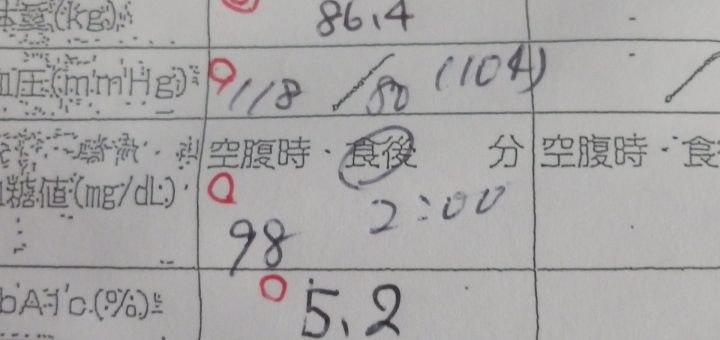 体重(kg) 86.4
血圧(mmHg) 118 / 80 (104)
空腹時・食後 分 空腹時・食
血糖値(mg/dL) 2:00
98
bA1c(%) 5.2